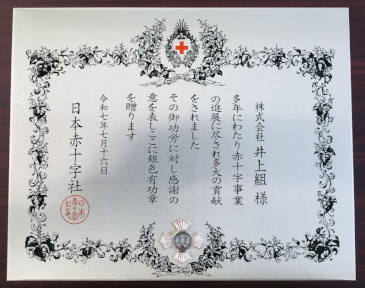 株式会社 井上組 様
多年にわたり赤十字事業
の進展に尽され多大の貢献
をされました
その御功労に対し感謝の
意を表しここに銀色有功章
を贈ります
令和七年七月十六日
日本赤十字社